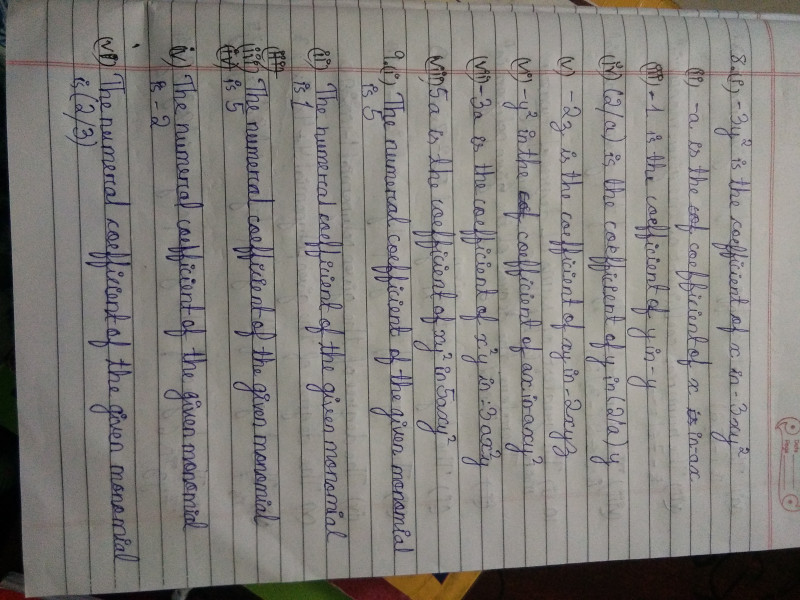 8.(i) -3y² is the coefficient of x in -3xy²
(ii) -a is the coefficient of x in -ax
(iii) -1 is the coefficient of y in -y
(iv) (2/a) is the coefficient of y in (2/a)y
(v) -2z is the coefficient of xy in -2xyz
(vi) -y² in the coefficient of ax in axy²
(vii) -3a is the coefficient of x²y in -3ax²y
(viii) 5a is the coefficient of xy² in 5axy²
9.(i) The numerical coefficient of the given monomial
is 5
(ii) The numerical coefficient of the given monomial
is 1
(iii) The numerical coefficient of the given monomial
is 5
iv) The numerical coefficient of the given monomial
is -2
(vi) The numerical coefficient of the given monomial
is (2/3)